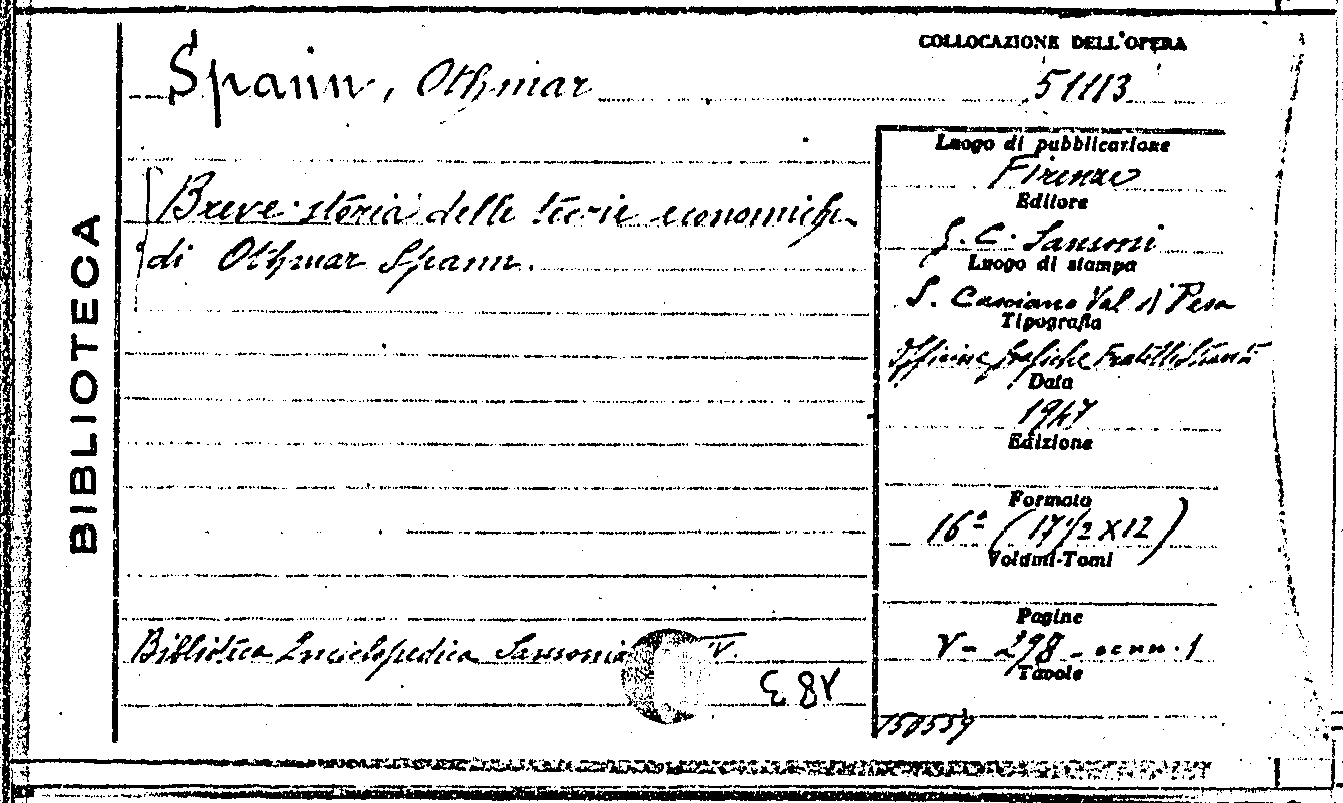 BIBLIOTECA
Spann, Othmar
Breve storia delle teorie economiche
di Othmar Spann.
Biblioteca Enciclopedica Sansoniana V.
COLLOCAZIONE DELL'OPERA
51113
Luogo di pubblicazione
Firenze
Editore
G. C. Sansoni
Luogo di stampa
S. Casciano Val di Pesa
Tipografia
Officine grafiche Fratelli Stianti
Data
1947
Edizione
Formato
16º (17 1/2 X 12)
Volumi-Tomi
Pagine
V - 298 -
Tavole
150559